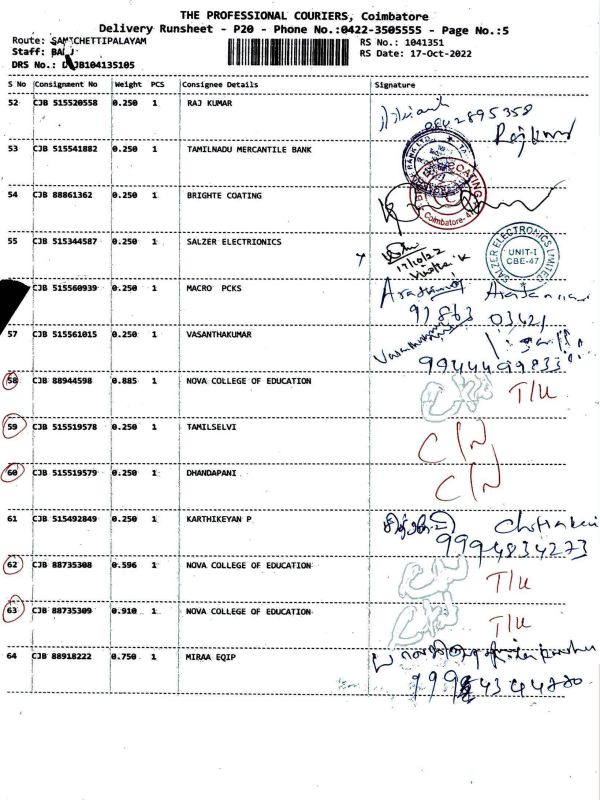 THE PROFESSIONAL COURIERS, Coimbatore
Delivery Runsheet - P20 - Phone No.:0422-3505555 - Page No.:5
Route: SAM CHETTIPALAYAM
RS No.: 1041351
Staff:
RS Date: 17-Oct-2022
DRS No.: JB104135105
S No Consignment No Weight PCS Consignee Details Signature
52 CJB 515520558 0.250 1 RAJ KUMAR
9842895358
Rajkumar
53 CJB 515541882 0.250 1 TAMILNADU MERCANTILE BANK
BANK LTD.
54 CJB 88861362 0.250 1 BRIGHTE COATING
COATING
Coimbatore-47
55 CJB 515344587 0.250 1 SALZER ELECTRIONICS
17/10/22
SALZER ELECTRONICS LIMITED
UNIT-I
CBE-47
CJB 515560939 0.250 1 MACRO PCKS
91863 03421
57 CJB 515561015 0.250 1 VASANTHAKUMAR
Vasanthakumar
9944499833
58 CJB 88944598 0.885 1 NOVA COLLEGE OF EDUCATION
T/U
59 CJB 515519578 0.250 1 TAMILSELVI
C/N
60 CJB 515519579 0.250 1 DHANDAPANI
C/N
61 CJB 515492849 0.250 1 KARTHIKEYAN P
9994834273
62 CJB 88735308 0.596 1 NOVA COLLEGE OF EDUCATION
T/U
63 CJB 88735309 0.910 1 NOVA COLLEGE OF EDUCATION
T/U
64 CJB 88918222 0.750 1 MIRAA EQIP